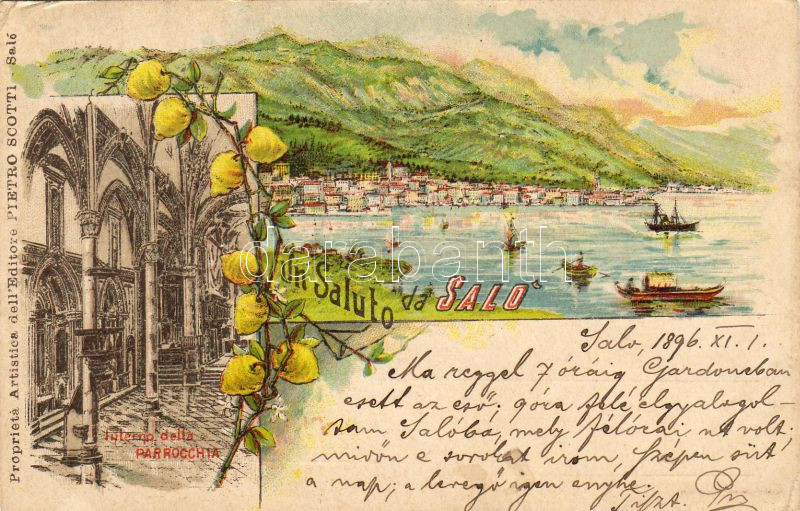 Proprietà Artistica dell'Editore PIETRO SCOTTI Salò
Un Saluto da SALÒ
darabanth
Interno della
PARROCCHIA
Salo, 1896. XI. 1.
Ma reggel 7 óráig Gardoneban
esett az eső; góra felé elgyalogol-
tam Salóba, mely félórai út volt.
midőn e sorokat irom, szépen süt
a nap; a levegő igen enyhe.
Tiszt.